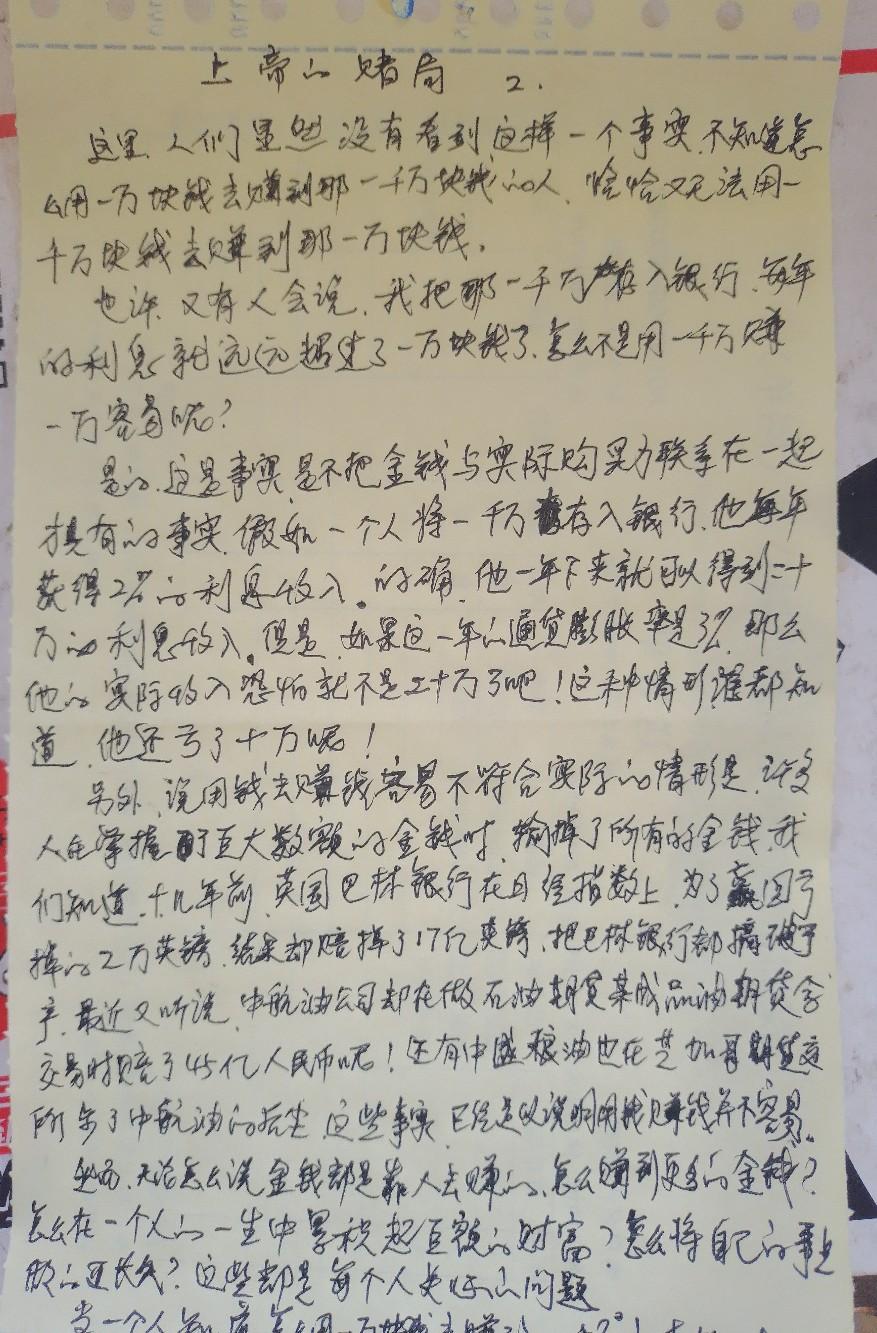 上帝的赌局 2.
这里,人们显然没有看到这样一个事实,不知道怎
么用一万块钱去赚到那一千万块钱的人,恰恰又无法用一
千万块钱去赚到那一万块钱。
也许,又有人会说,我把那一千万存入银行,每年
的利息就远远超过了一万块钱了,怎么不是用一千万赚
一万容易呢?
是的,这是事实,是不把金钱与实际购买力联系在一起
才具有的事实,假如一个人将一千万存入银行,他每年
获得2%的利息收入。的确,他一年下来就可以得到二十
万的利息收入。但是,如果这一年的通货膨胀率是3%,那么
他的实际收入恐怕就不是二十万了吧!这种情形谁都知
道,他还亏了十万呢!
另外,说用钱去赚钱容易不符合实际的情形是,许多
人在掌握了巨大数额的金钱时,输掉了所有的金钱,我
们知道,十几年前,英国巴林银行在日经指数上,为了赢回亏
掉的2万英镑,结果却赔掉了17亿英镑,把巴林银行都搞破了
产,最近又听说,中航油公司却在做石油期货某成品油期货
交易时赔了45亿人民币呢!还有中国粮油也在芝加哥期货交
所步了中航油的后尘,这些事实,已经足以说明用钱赚钱并不容易。
然而,无论怎么说金钱都是靠人去赚的,怎么赚到更多的金钱?
怎么在一个人的一生中累积起巨额的财富?怎么将自己的事业
做的更长久?这些都是每个人关心的问题
当一个人知道怎么用一万块钱去赚到